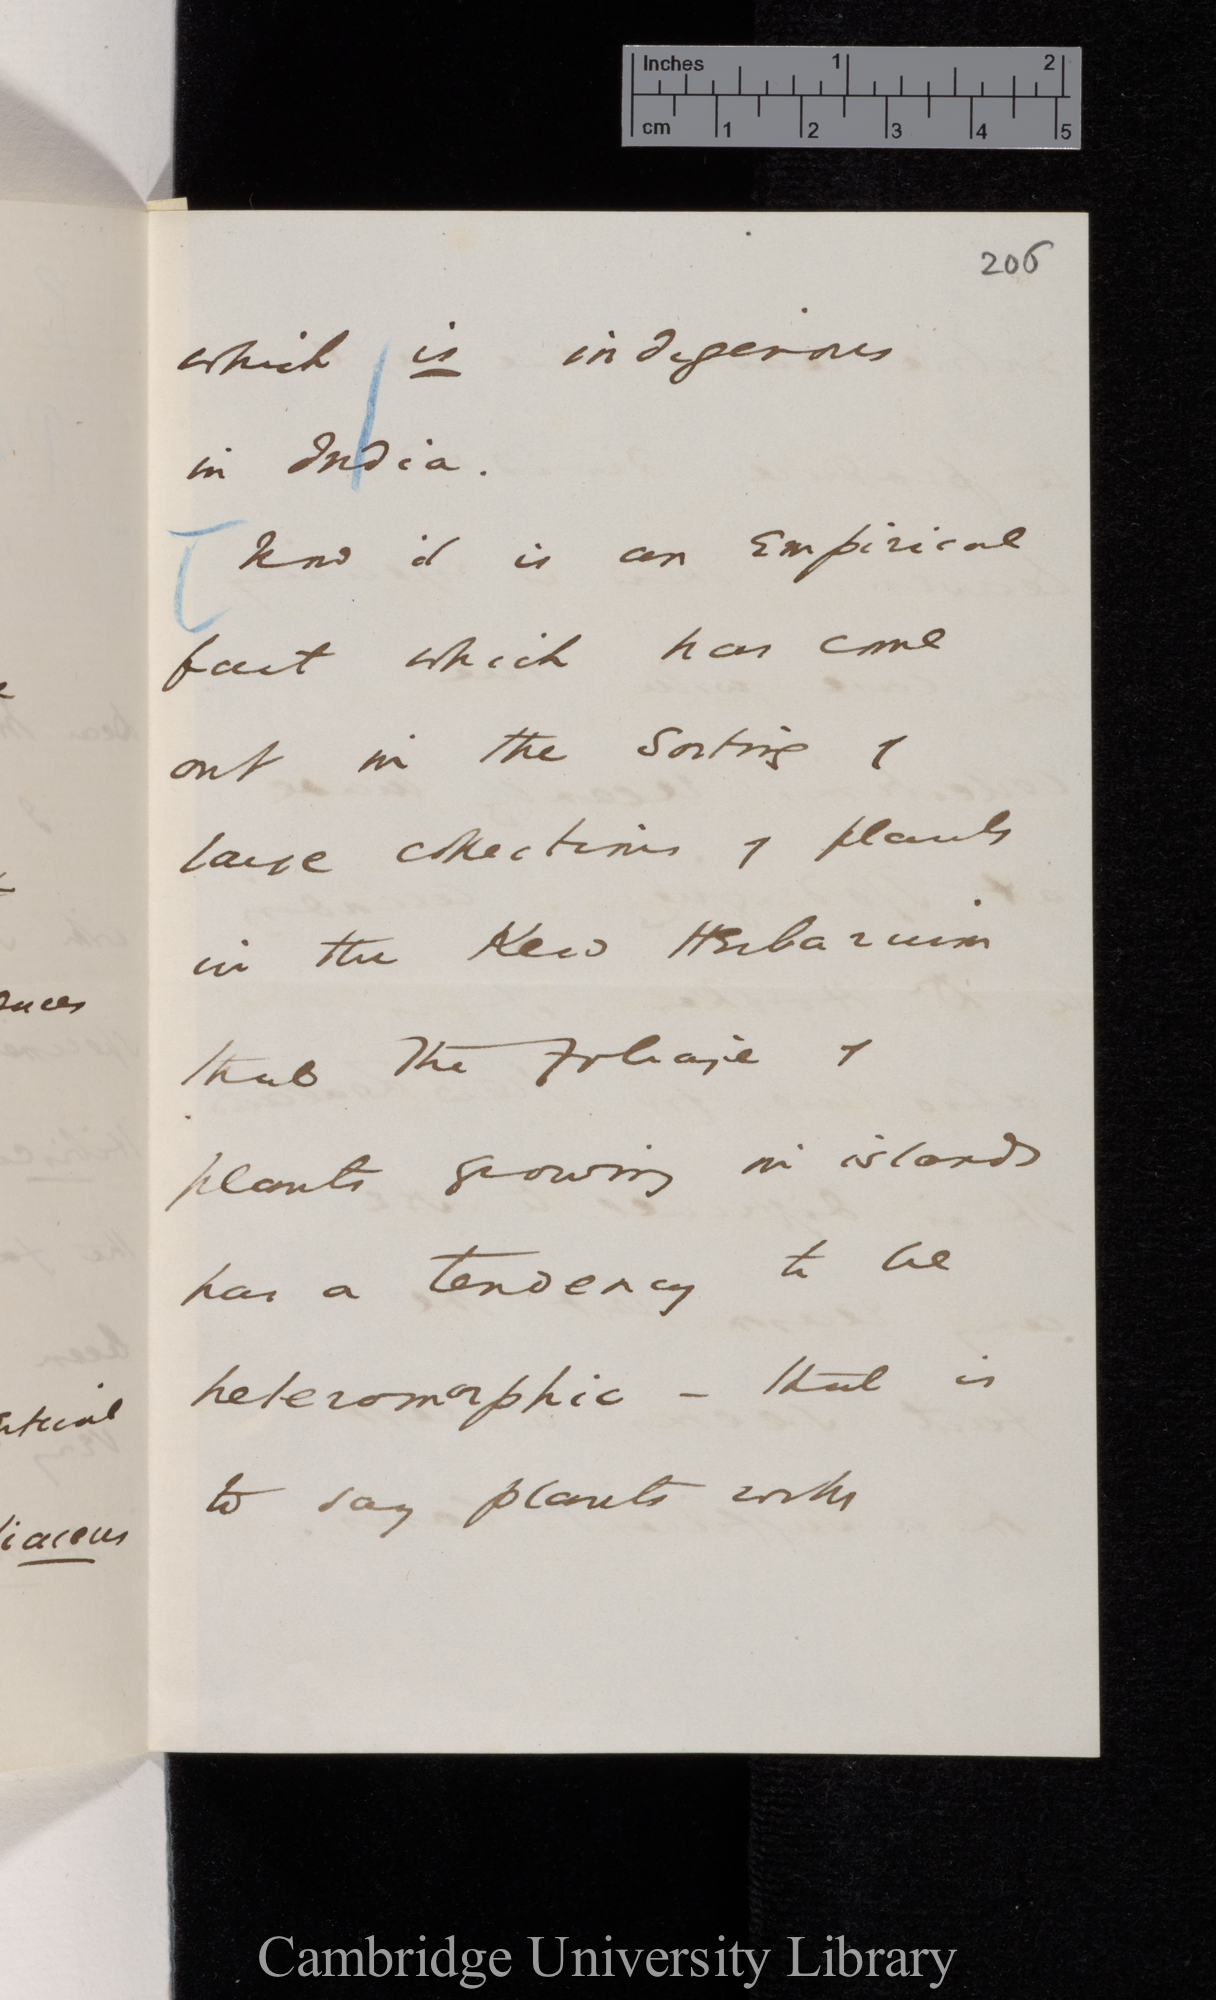 Inches 1 2
cm 1 2 3 4 5
206
which is indigenous
in India.
Now it is an Empirical
fact which has come
out in the Sorting of
large collections of plants
in the Kew Herbarium
that the foliage of
plants growing in islands
has a tendency to be
heteromorphic – that is
to say plants with
Cambridge University Library